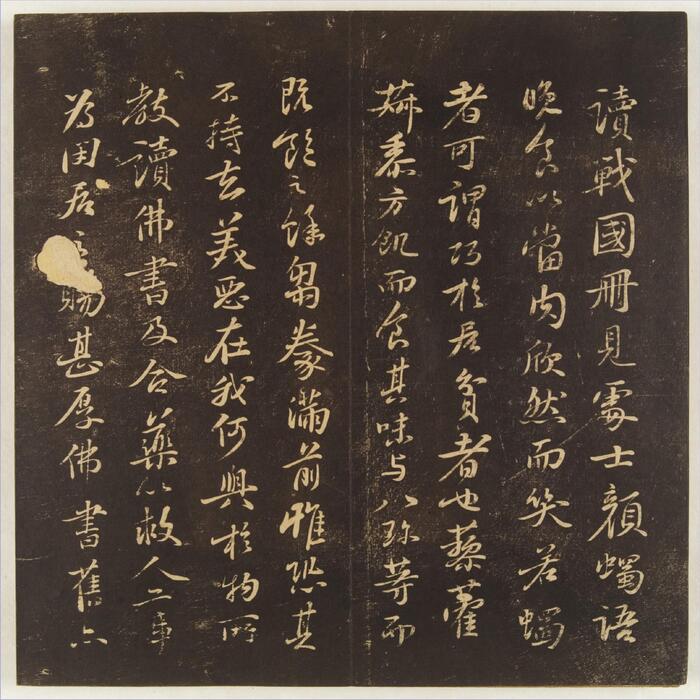 讀戰國冊見處士顏蠋語
晚食以當肉欣然而笑若蠋
者可謂巧於居貧者也藜藿
黍方飢而食其味与八珍等而
既飽之餘芻豢滿前惟恐其
不持去美惡在我何與於物所
教讀佛書及合藥以救人二事
為閑居之賜甚厚佛書舊亦